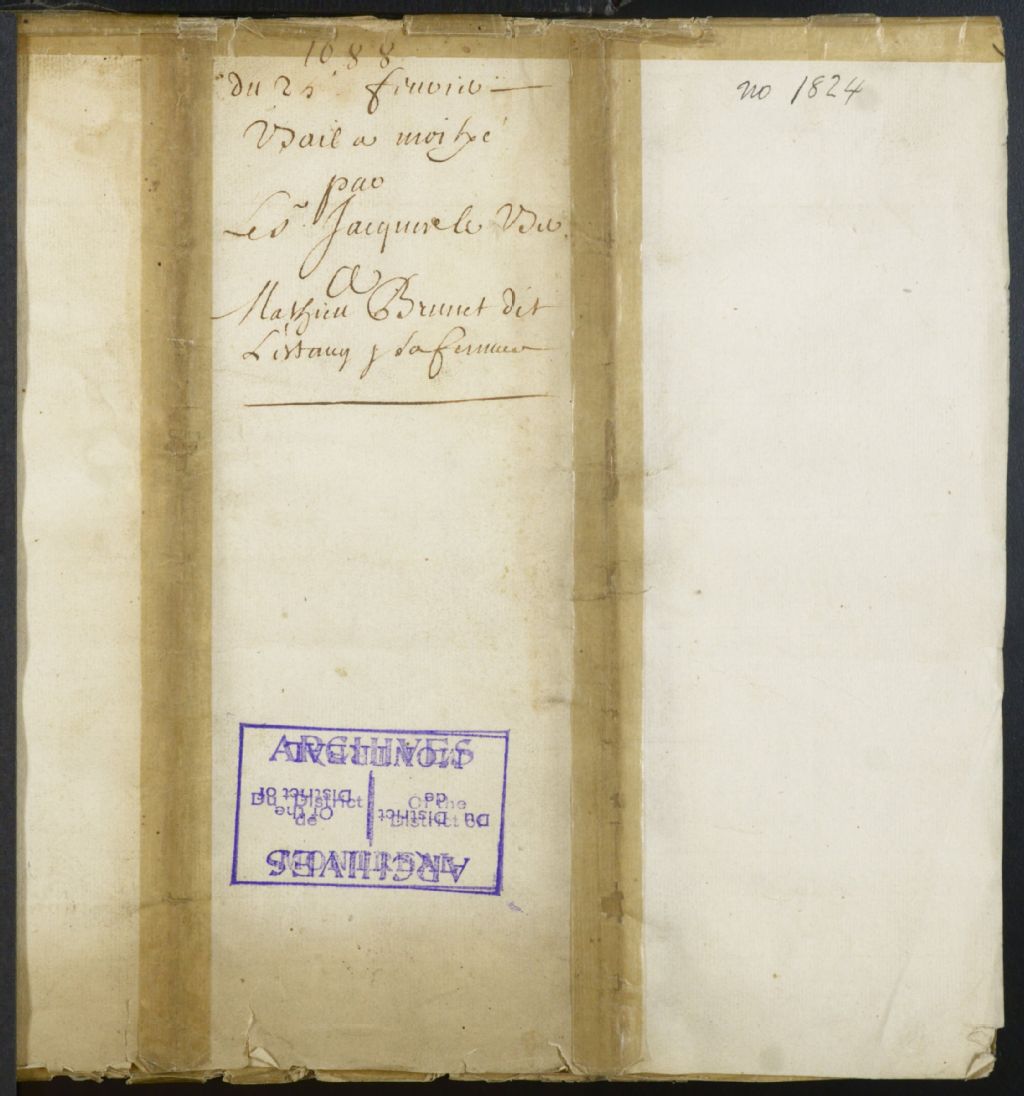 1688
du 25 feuvrie
Bail a moityé
par
Le Sr. Jacques le Ber
A
Mathieu Brunet dit
L'estang & sa femme
no 1824
ARCHIVES
Du District de
Of the District of
MONTREAL